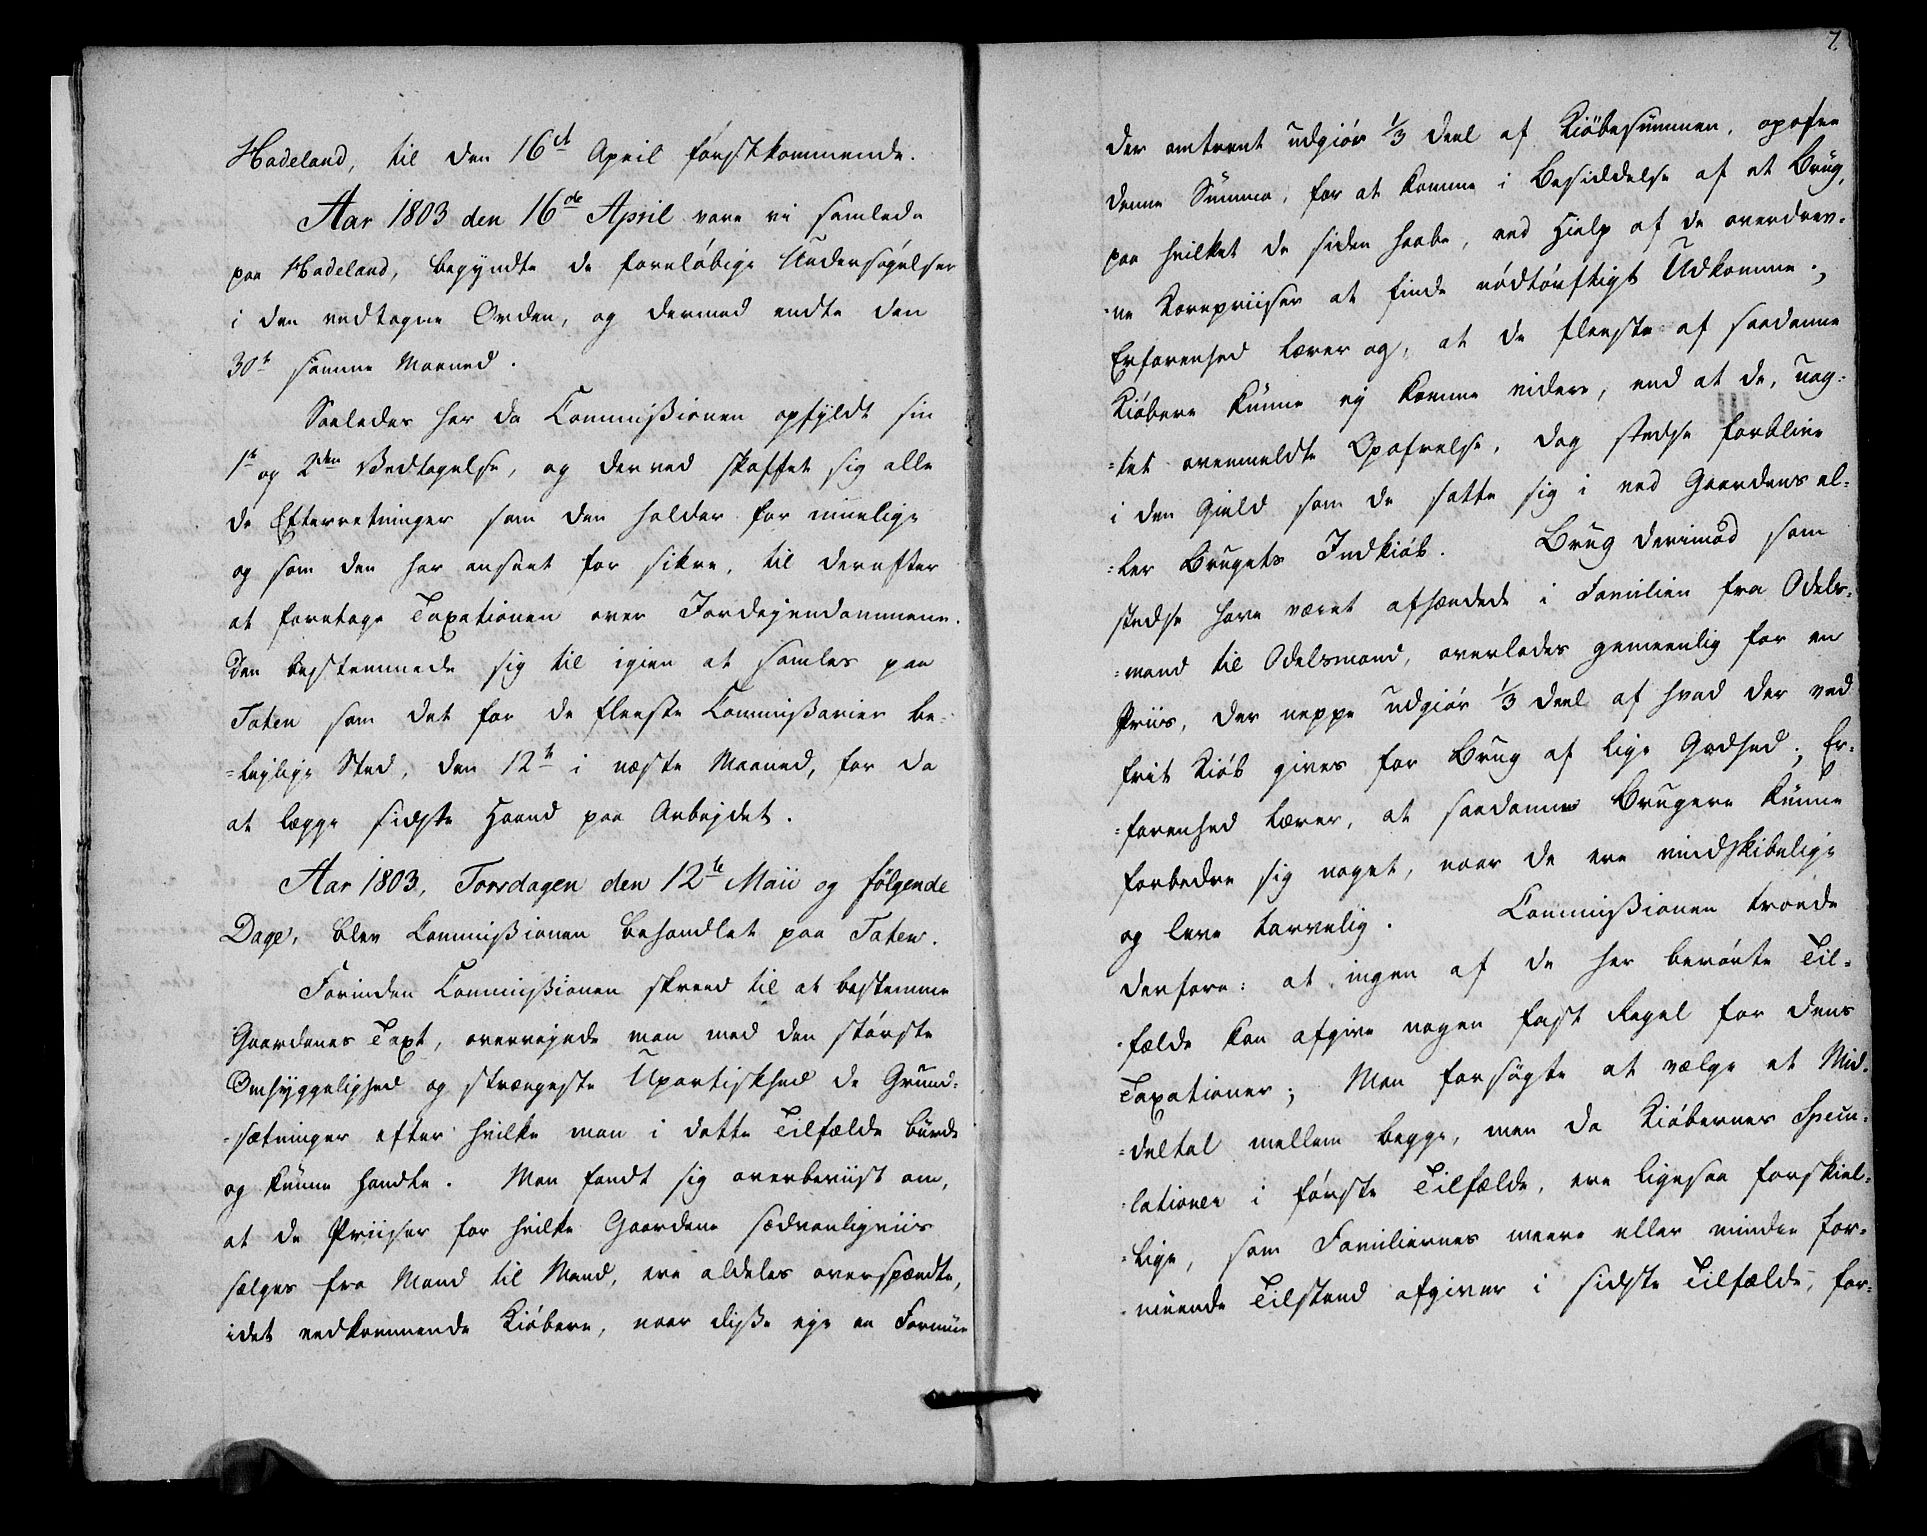 Hadeland, til den 16de April førstkommende.
Aar 1803 den 16de April vare vi samlede
paa Hadeland, begyndte de foreløbige Undersøgelser
i den vedtagne Orden, og dermed endte den
30te samme Maaned.
Saaledes har da Commißionen opfyldt sin
1te og 2den Vedtagelse, og derved skaffet sig alle
de Efterretninger som den holder for muelige
og som den har anseet for sikre, til derefter
at foretage Taxationen over Jordejendommene.
Den bestemmede sig til igien at samles paa
Toten som det for de fleeste Commißarier be-
=lejlige Sted, den 12te i næste Maaned, for da
at lægge sidste Haand paa Arbejdet.
Aar 1803, Torsdagen den 12te Maii og følgende
Dage, blev Commißionen behandlet paa Toten.
Forinden Commißionen skreed til at bestemme
Gaardenes Taxt, overvejede man med den største
Omhyggelighed og strængeste Upartiskhed de Grund=
=sætninger efter hvilke man i dette Tilfælde burde
og kunne handle. Man fandt sig overbeviist om,
at de Priiser for hvilke Gaardene sædvanligviis
sælges fra Mand til Mand, ere aldeles overspændte,
idet vedkommende Kiøbere, naar diße eje en Formue
7.
der omtrent udgiør 1/3 deel af Kiøbesummen, opofre
denne Summa, for at komme i Besiddelse af et Brug,
paa hvilket de siden haabe, ved Hielp af de overdrev=
=ne Kornpriiser at finde nødtørftigt Udkomme.;
Erfarenhed lærer og, at de fleeste af saadanne
Kiøbere kunne ej komme videre, end at de, uag=
=tet ovenmeldte Opofrelse, dog stedse forblive
i den Gield som de satte sig i ved Gaardens el=
=ler Brugets Indkiøb. Brug derimod som
stedse have været afhændede i Familien fra Odels=
=mand til Odelsmand, overlades gemeenlig for en
Priis, der neppe udgiør 1/3 deel af hvad der ved
frit Kiøb gives for Brug af lige Godhed; Er=
=farenhed lærer, at saadanne Brugere kunne
forbedre sig noget, naar de ere vindskibelige
og leve tarvelig. Commißionen troede
derfore: at ingen af de her berørte Til=
=fælde kan afgive nogen fast Regel for dens
Taxationer; Man forsøgte at vælge et Mid=
=deltal mellem begge, men da Kiøbernes Specu=
=lationer i første Tilfælde, ere ligesaa forskiel=
=lige, som Familiernes meere eller mindre for=
=muende Tilstand afgiver i sidste Tilfælde, for=